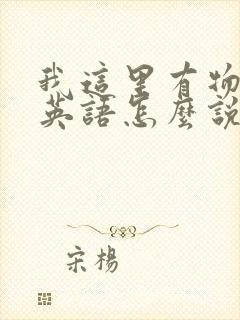 我這里有物
英語怎麼說
宋楊